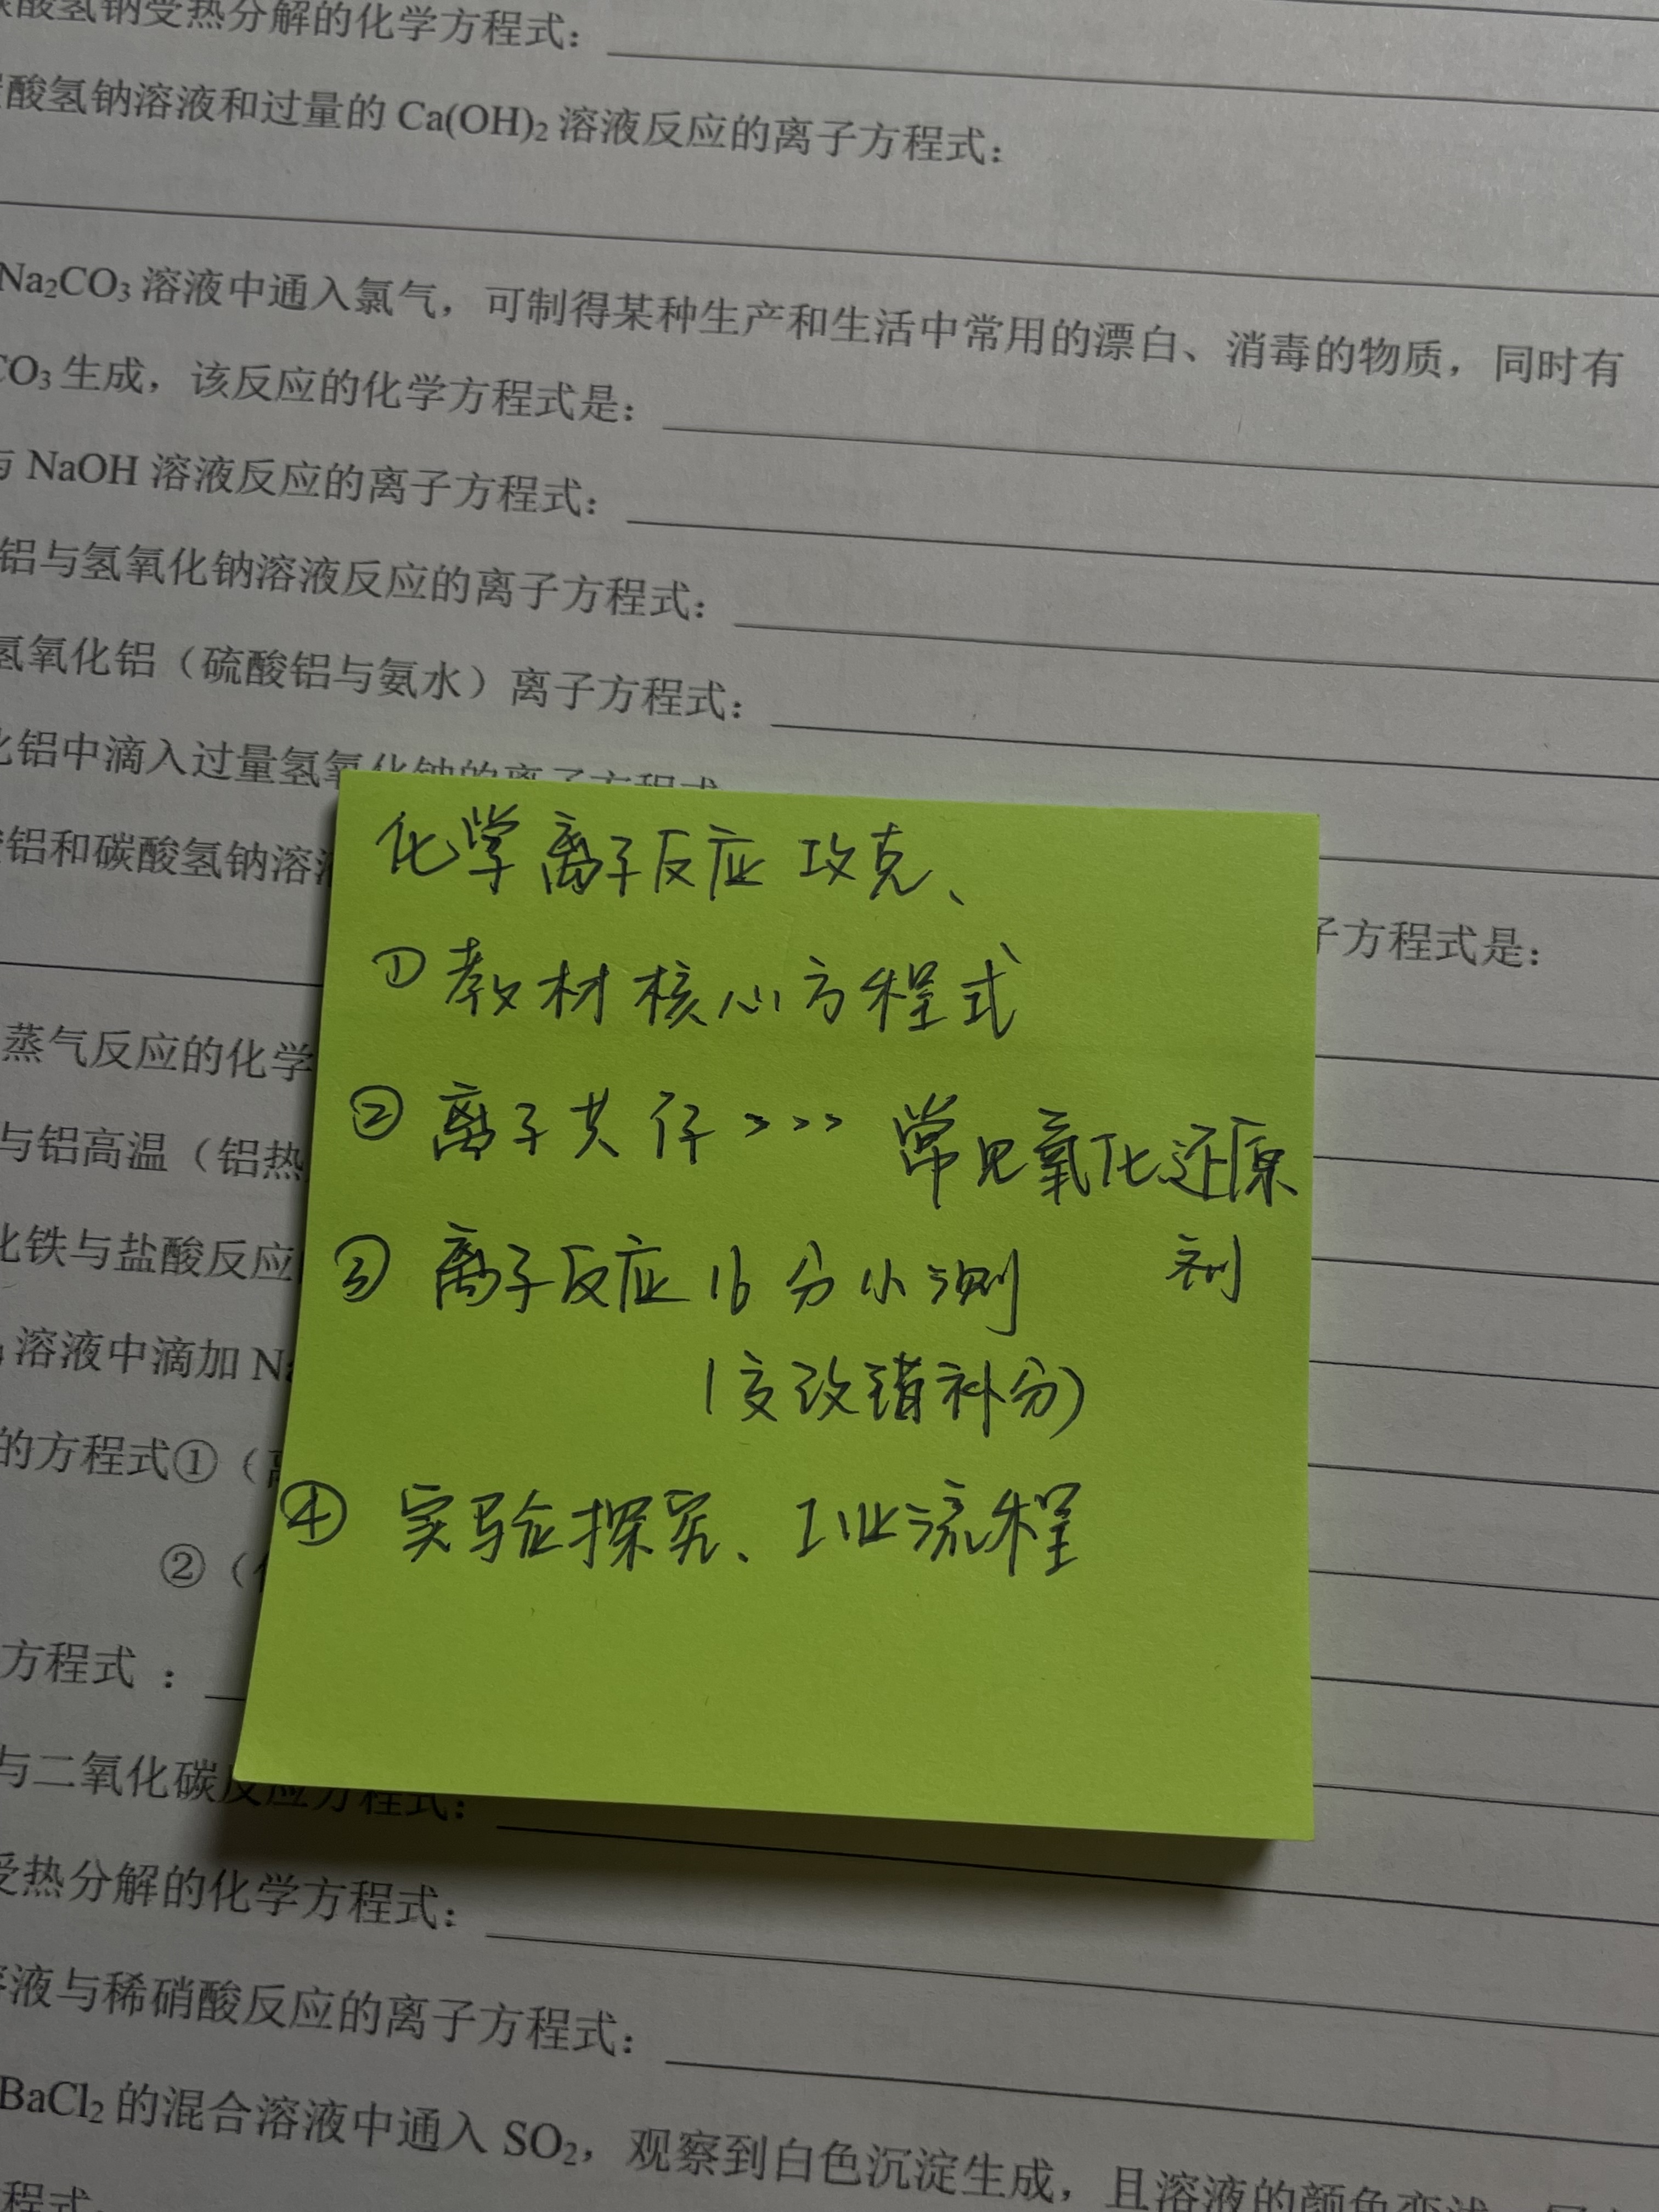 酸氢钠受热分解的化学方程式：
酸氢钠溶液和过量的 Ca(OH)₂ 溶液反应的离子方程式：
Na₂CO₃ 溶液中通入氯气，可制得某种生产和生活中常用的漂白、消毒的物质，同时有
CO₃ 生成，该反应的化学方程式是：
与 NaOH 溶液反应的离子方程式：
铝与氢氧化钠溶液反应的离子方程式：
氢氧化铝（硫酸铝与氨水）离子方程式：
化铝中滴入过量氢氧化钠的离子方程式
铝和碳酸氢钠溶液
子方程式是：
蒸气反应的化学
与铝高温（铝热
化铁与盐酸反应
溶液中滴加 Na
的方程式①（离
②（
方程式 ：
与二氧化碳反应方程式：
受热分解的化学方程式：
溶液与稀硝酸反应的离子方程式：
BaCl₂ 的混合溶液中通入 SO₂，观察到白色沉淀生成，且溶液的颜色变浅
程式
化学离子反应攻克、
① 教材核心方程式
② 离子共存 >>> 常见氧化还原
剂
③ 离子反应 16 分小测
(变改错补分)
④ 实验探究、工业流程